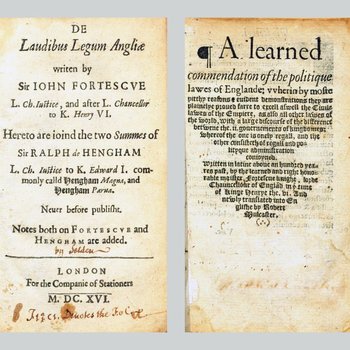 DE
Laudibus Legum Angliæ
writen by
Sir IOHN FORTESCVE
L. Ch. Iustice, and after L. Chancellor
to K. Henry VI.
Hereto are ioind the two Summes of
Sir RALPH de HENGHAM
L. Ch. Iustice to K. Edward I. commonly calld Hengham Magna, and
Hengham Parua.
Neuer before publisht.
Notes both on FORTESCVE and
HENGHAM are added.
by Selden
LONDON
For the Companie of Stationers
M. DC. XVI.
¶ A learned
commendation of the politique
lawes of Englande; vvherin by moste
pitthy reasons & euident demonstrations they are
plainelye proued farre to excell aswell the Ciuile
lawes of the Empiere, as also all other lawes of
the world, with a large discourse of the difference
betwene the. ii. gouernements of kingdomes:
whereof the one is onely regall, and the
other consisteth of regall and politique administration
conioyned.
Written in latine aboue an hundred yeares past, by the learned and right honorable
maister Fortescue knight, lorde
Chauncellour of England in ye time
of Kinge Henrye the. vi. And
newly translated into Englishe by Robert
Mulcaster.